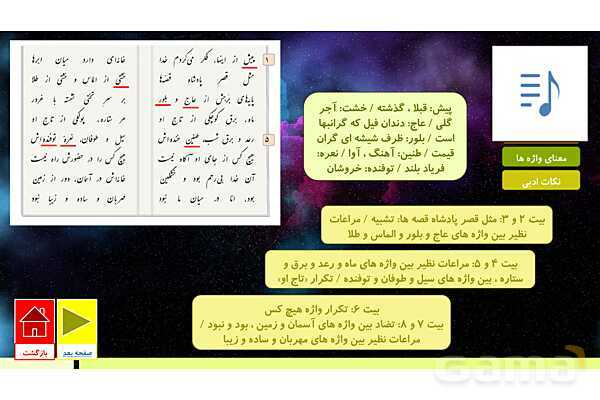 ۱ پیش از اینها، فکر می‌کردم خدا
خانه‌ای دارد میان ابرها
مثل قصر پادشاه قصه‌ها
خشتی از الماس و خشتی از طلا
پایه‌های برجش از عاج و بلور
بر سر تختی نشسته با غرور
ماه، برق کوچکی از تاج او
هر ستاره، پولکی از تاج او
۵ رعد و برق شب، طنین خنده‌اش
سیل و طوفان، نعرهٔ توفنده‌اش
هیچ کس از جای او آگاه نیست
هیچ کس را در حضورش راه نیست
آن خدا بی‌رحم بود و خشمگین
خانه‌اش در آسمان، دور از زمین
بود، اما در میان ما نبود
مهربان و ساده و زیبا نبود
پیش: قبلا ، گذشته / خشت: آجر
گلی / عاج: دندان فیل که گرانبها
است / بلور: ظرف شیشه ای گران
قیمت / طنین: آهنگ ، آوا / نعره:
فریاد بلند / توفنده: خروشان
معنای واژه ها
نکات ادبی
بیت ۲ و ۳: مثل قصر پادشاه قصه ها: تشبیه / مراعات
نظیر بین واژه های عاج و بلور و الماس و طلا
بیت ۴ و ۵: مراعات نظیر بین واژه های ماه و رعد و برق و
ستاره ، بین واژه های سیل و طوفان و توفنده / تکرار «تاج او»
بیت ۶: تکرار واژه هیچ کس
بیت ۷ و ۸: تضاد بین واژه های آسمان و زمین ، بود و نبود /
مراعات نظیر بین واژه های مهربان و ساده و زیبا
صفحه بعد
بازگشت
Gama